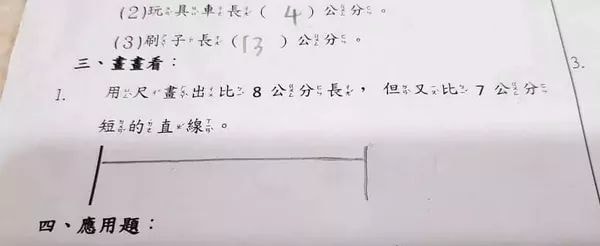 (2)玩具車長( 4 )公分。
(3)刷子長( 13 )公分。
三、畫畫看：
1. 用尺畫出比 8 公分長，但又比 7 公分
短的直線。
3.
四、應用題：